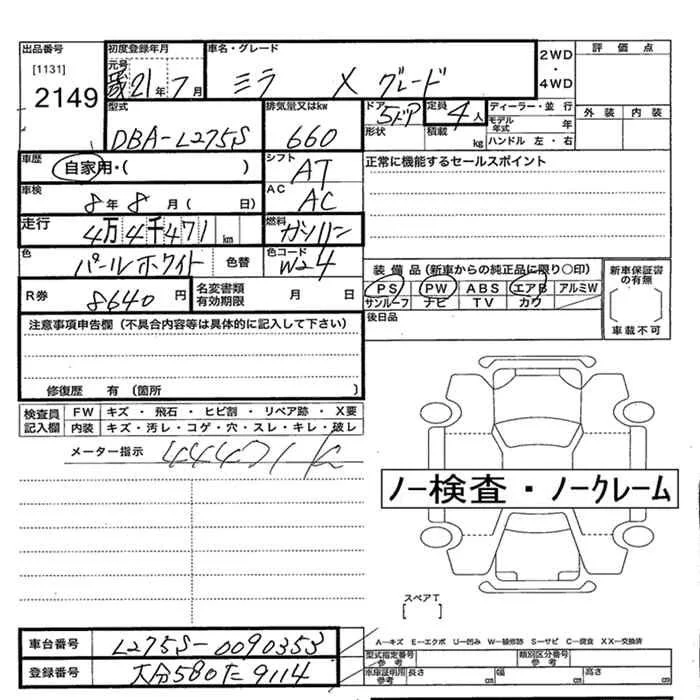 出品番号
[1131]
2149
初度登録年月
元号
21年7月
車名・グレード
ミラ X グレード
2WD・4WD
評価点
外装 内装
型式
DBA-L275S
排気量又はkw
660
ドア
5ドア
形状
定員
4人
積載 kg
ディーラー・並行
モデル年式 年
ハンドル 左・右
車歴
自家用・( )
シフト
AT
正常に機能するセールスポイント
車検
8年8月( 日)
AC
AC
走行
4万4千471km
燃料
ガソリン
色
パールホワイト 色替
色コード
W24
装備品(新車からの純正品に限り〇印)
PS PW ABS エアB アルミW
サンルーフ ナビ TV カワ
新車保証書の有無
車載不可
R券 8640円
名変書類有効期限 月 日
後日品
注意事項申告欄(不具合内容等は具体的に記入して下さい)
修復歴 有(箇所 )
検査員記入欄
FW キズ・飛石・ヒビ割・リペア跡・X要
内装 キズ・汚レ・コゲ・穴・スレ・キレ・破レ
メーター指示 44471K
ノー検査・ノークレーム
スペアT
[ ]
A-キズ E-エクボ U-凹み W-補修跡 S-サビ C-腐食 XX-交換済
車台番号 L275S-0090353
登録番号 大分580た9114
型式指定番号 参考
類別区分番号 参考
車庫証明用 参考
長さ cm 幅 cm 高さ cm